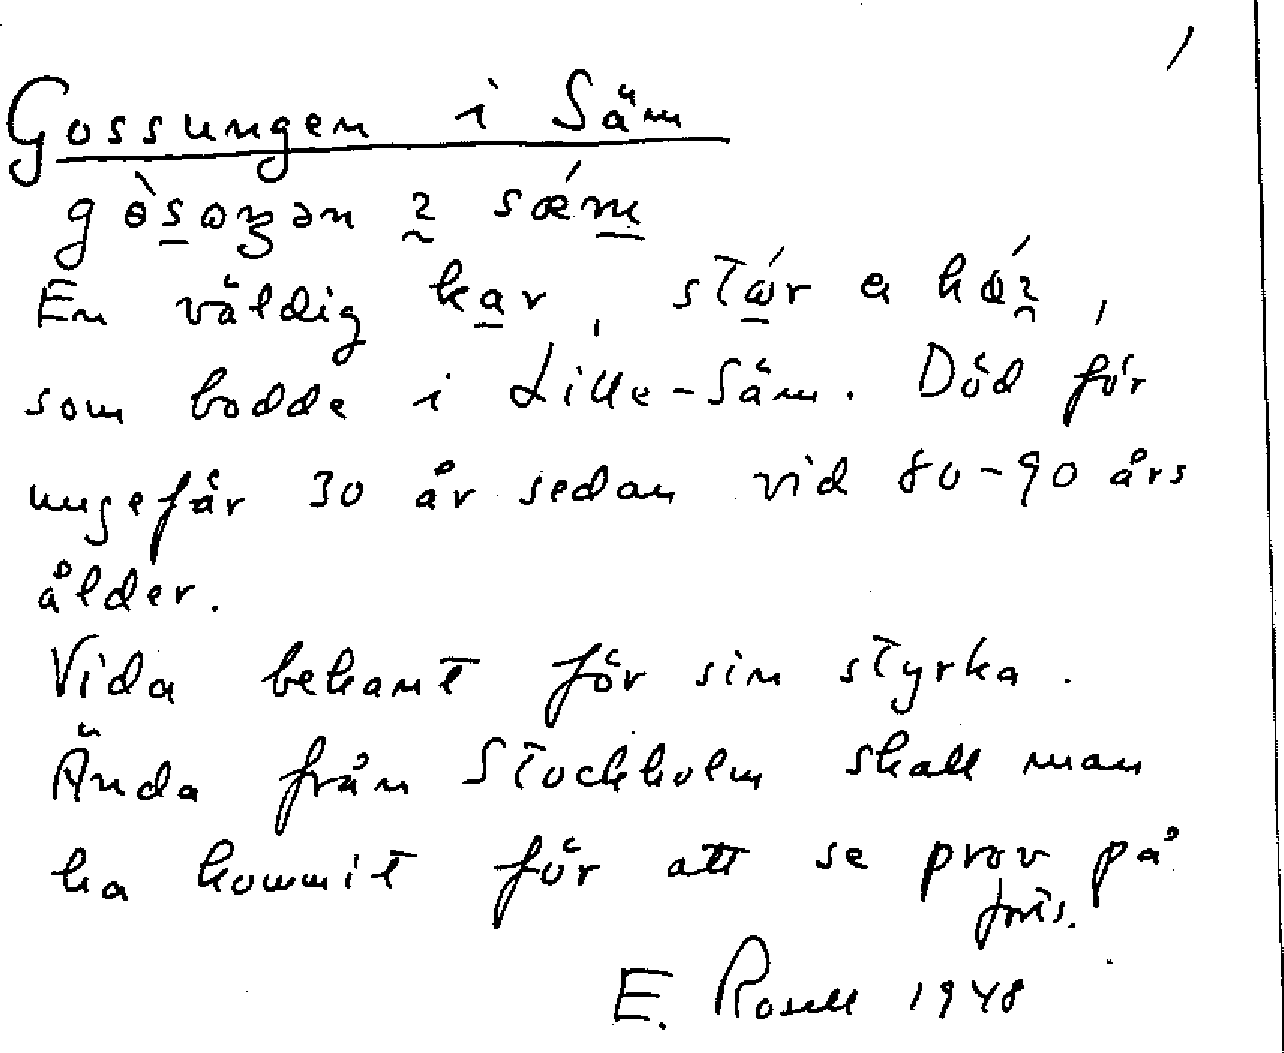 Gossungen i Säm
gɵ̀sɷŋən ɩ sǽm
En väldig kar, stǻr ɑ hǿɩ,
som bodde i Lille-Säm. Död för
ungefär 30 år sedan vid 80-90 års
ålder.
Vida bekant för sin styrka.
Ända från Stockholm skall man
ha kommit för att se prov på
forts.
E. Rosell 1948